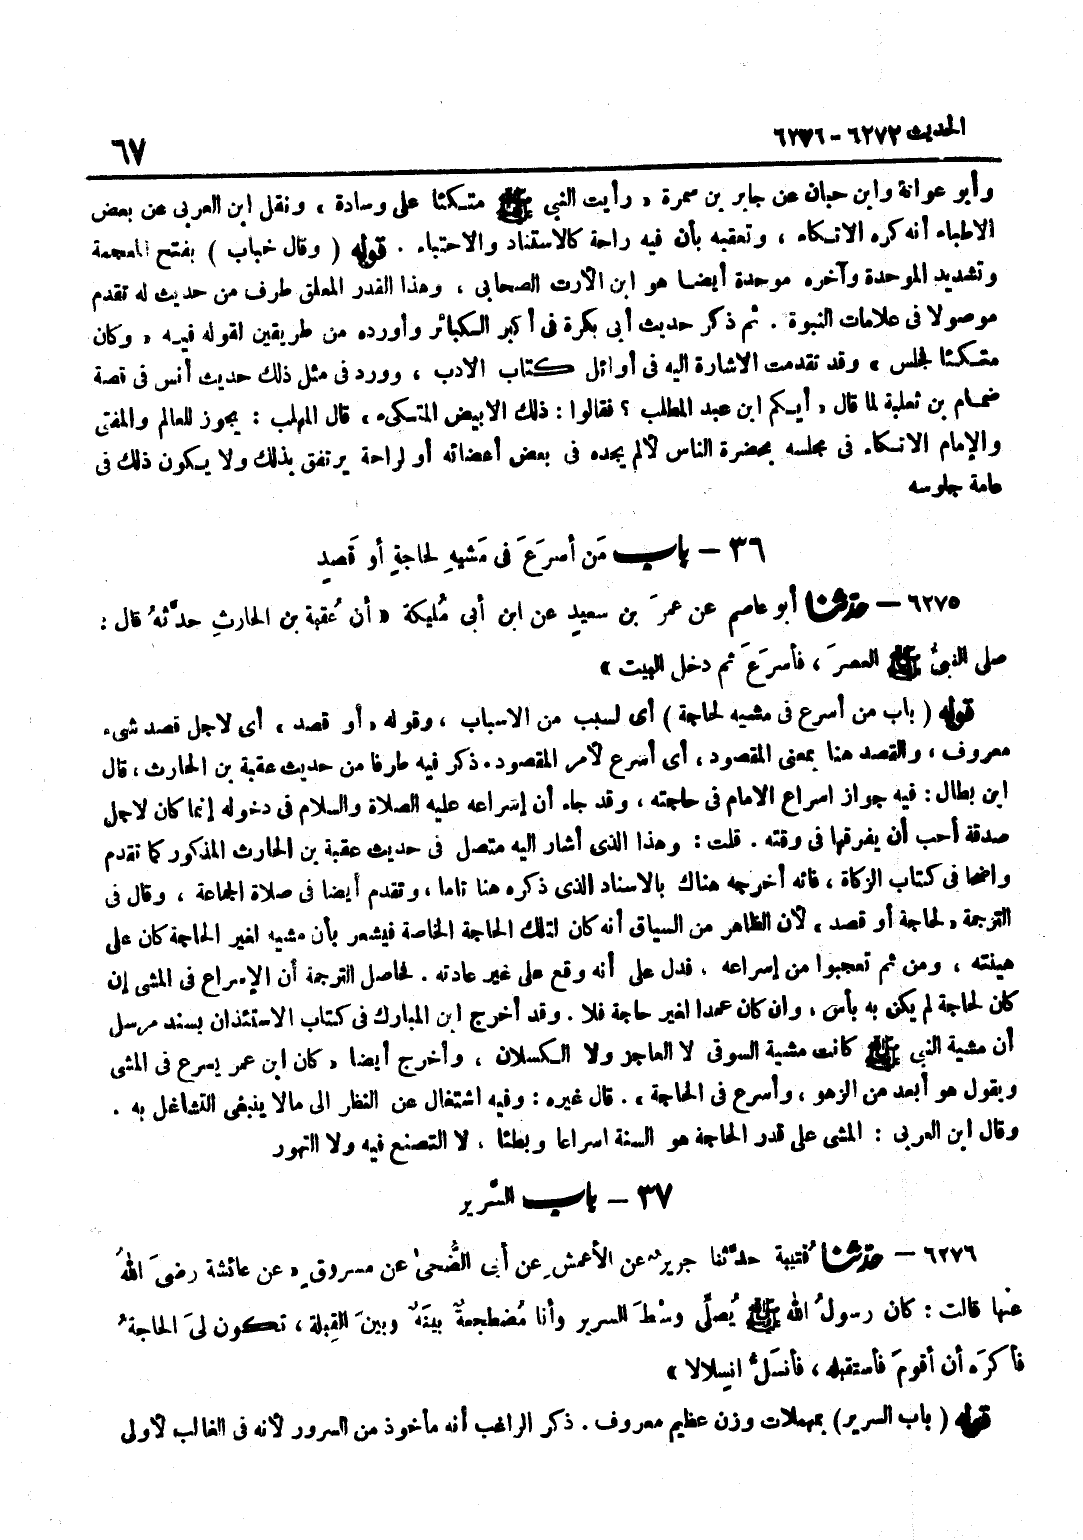 الحديث ٦٢٧٢ - ٦٢٧٦
٦٧
وأبو عوانة وابن حبان عن جابر بن سمرة « رأيت النبي ﷺ متكئا على وسادة ، ونقل ابن العربى عن بعض
الاطباء أنه كره الاتكاء ، وتعقبه بأن فيه راحة كالاستناد والاحتباء . قوله ( وقال خباب ) بفتح المعجمة
وتشديد الموحدة وآخره موحدة أيضا هو ابن الأرت الصحابى ، وهذا القدر المعلق طرف من حديث له تقدم
موصولا فى علامات النبوة . ثم ذكر حديث أبى بكرة فى أكبر الكبائر وأورده من طريقين لقوله فيه « وكان
متكئا فجلس » وقد تقدمت الاشارة اليه فى أوائل كتاب الادب ، وورد فى مثل ذلك حديث أنس فى قصة
ضمام بن ثعلبة لما قال « أيكم ابن عبد المطلب ؟ فقالوا : ذلك الابيض المتكىء ، قال المهلب : يجوز للعالم والمفتى
والإمام الاتكاء فى مجلسه بحضرة الناس لألم يجده فى بعض أعضائه أو لراحة يرتفق بذلك ولا يكون ذلك فى
عامة جلوسه
٣٦ – باب مَن أسرَعَ فى مَشيهِ لحاجةٍ أو قَصدٍ
٦٢٧٥ – حدّثنا أبو عاصم عن عمرَ بن سعيدٍ عن ابن أبى مُليكة « أن عُقبة بن الحارثِ حدَّثهُ قال :
صلى النبىُّ ﷺ العصرَ ، فأسرَعَ ثم دخل البيت »
قوله ( باب من أسرع فى مشيه لحاجة ) أى لسبب من الاسباب ، وقوله « أو قصد ، أى لاجل قصد شىء
معروف ، والقصد هنا بمعنى المقصود ، أى أسرع لأمر المقصود . ذكر فيه طرفا من حديث عقبة بن الحارث ، قال
ابن بطال : فيه جواز اسراع الامام فى حاجته ، وقد جاء أن إسراعه عليه الصلاة والسلام فى دخوله إنما كان لاجل
صدقة أحب أن يفرقها فى وقته . قلت : وهذا الذى أشار اليه متصل فى حديث عقبة بن الحارث المذكور كما تقدم
واضحا فى كتاب الزكاة ، فانه أخرجه هناك بالاسناد الذى ذكره هنا تاما ، وتقدم أيضا فى صلاة الجماعة ، وقال فى
الترجمة « لحاجة أو قصد ، لأن الظاهر من السياق أنه كان لتلك الحاجة الخاصة فيشعر بأن مشيه لغير الحاجة كان على
هينته ، ومن ثم تعجبوا من إسراعه ، فدل على أنه وقع على غير عادته . فحاصل الترجمة أن الإسراع فى المشى إن
كان لحاجة لم يكن به بأس ، وان كان عمدا لغير حاجة فلا . وقد أخرج ابن المبارك فى كتاب الاستئذان بسند مرسل
أن مشية النبي ﷺ كانت مشية السوقى لا العاجز ولا الكسلان ، وأخرج أيضا « كان ابن عمر يسرع فى المشى
ويقول هو أبعد من الزهو ، وأسرع فى الحاجة » . قال غيره : وفيه اشتغال عن النظر الى مالا ينبغى التشاغل به .
وقال ابن العربى : المشى على قدر الحاجة هو السنة اسراعا وبطئا ، لا التصنع فيه ولا التهور
٣٧ – باب السَّرير
٦٢٧٦ – حدّثنا قُتيبة حدَّثنا جريرٌ عن الأعمشِ عن أبى الضُّحىٰ عن مسروقٍ « عن عائشة رضىَ اللهُ
عنها قالت : كان رسولُ الله ﷺ يُصلِّى وسْطَ السرير وأنا مُضطجعةٌ بينَهُ وبينَ القِبلة ، تكون لىَ الحاجةُ
فأكرَه أن أقومَ فأستقبله ، فأنسَلُّ انسِلالا »
قوله ( باب السرير) بمهملات وزن عظيم معروف . ذكر الراغب أنه مأخوذ من السرور لأنه فى الغالب لأولى